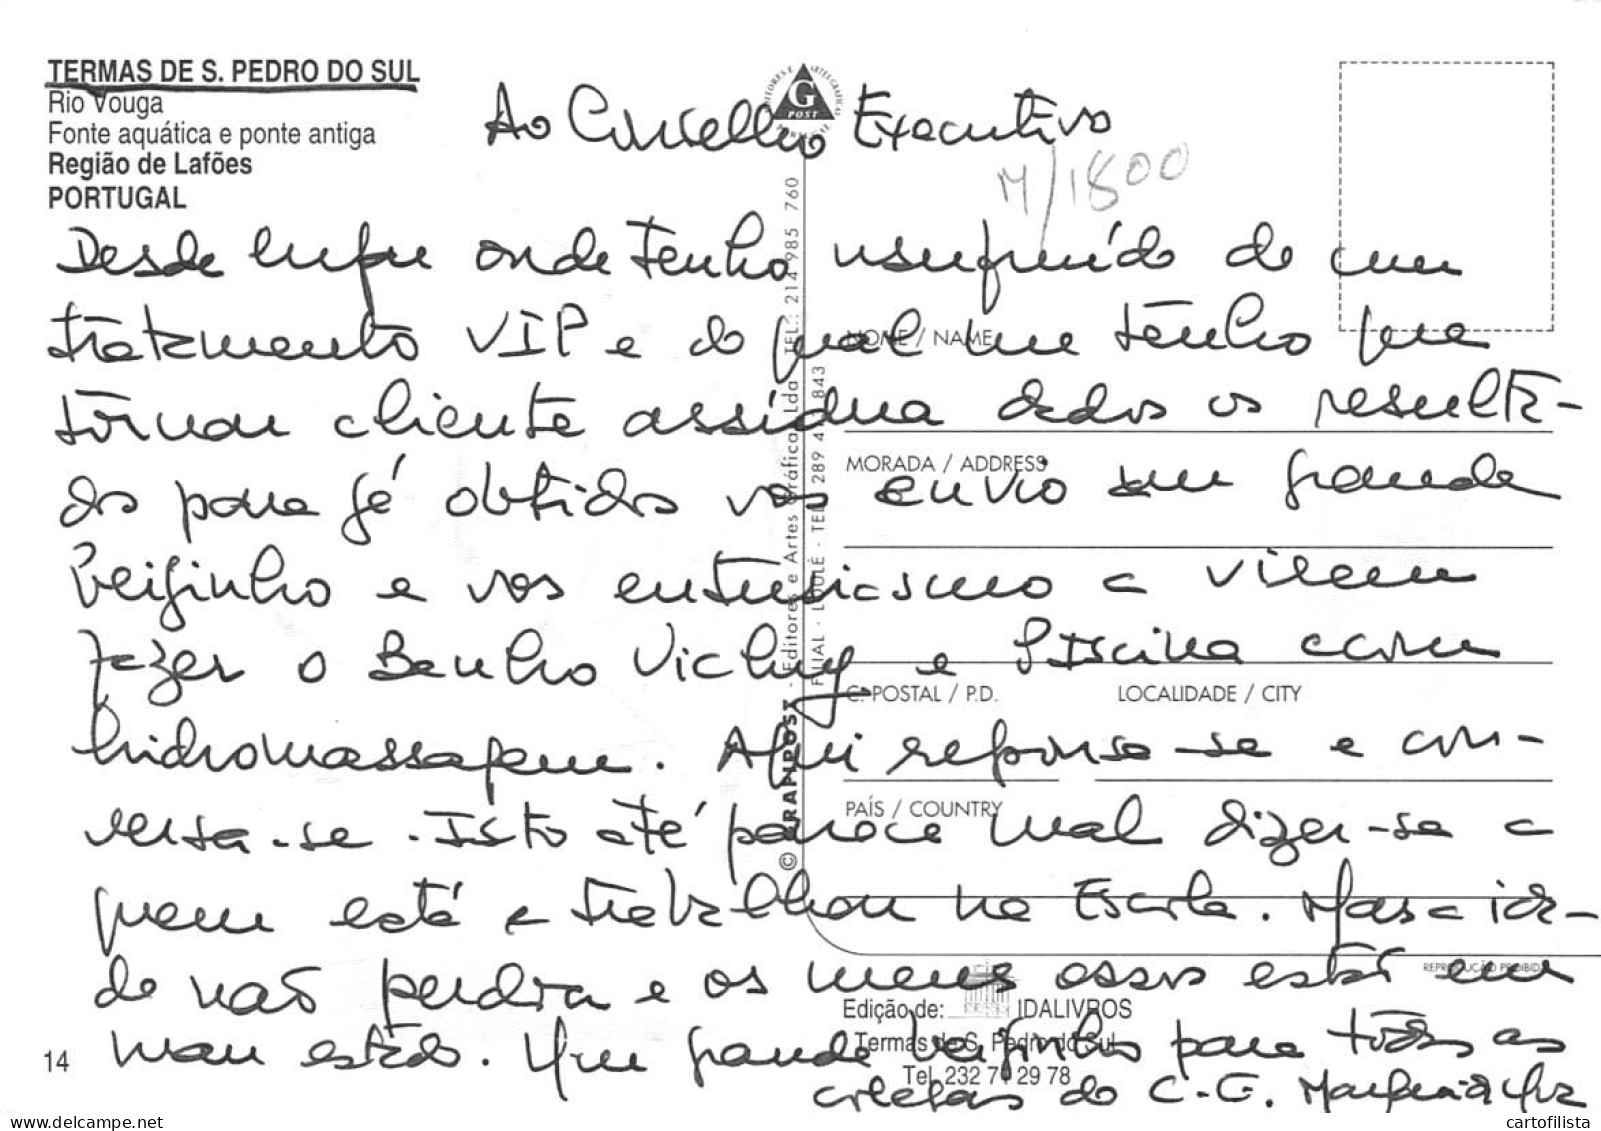 TERMAS DE S. PEDRO DO SUL
Rio Vouga
Fonte aquática e ponte antiga
Região de Lafões
PORTUGAL
Ao Conselho Executivo
M/1800
Desde lugar onde tenho usufruído de um
tratamento VIP e do qual me tenho que
tornar cliente assídua dados os resulta-
dos para já obtidos vos envio um grande
beijinho e vos entusiasmo a virem
fazer o Banho Vichy e Piscina com
hidromassagem. Aqui repousa-se e con-
versa-se. Isto até parece mal dizer-se a
quem está a trabalhar na Escola. Mas a ida-
de não perdoa e os meus ossos estão em
mau estado. Um grande beijinho para todos os
colegas do C. E. Margarida
NOME / NAME
MORADA / ADDRESS
C. POSTAL / P.D.
LOCALIDADE / CITY
PAÍS / COUNTRY
REPRODUÇÃO PROIBIDA
Edição de: IDALIVROS
Termas de S. Pedro do Sul
Tel. 232 71 29 78
14
© GRAFIPOST - Editores e Artes Gráficas, Lda TEL.: 214 985 760
FILIAL - LOULÉ - TEL. 289 4 843
G
POST
EDITORES E ARTES GRÁFICAS
PORTUGAL
cartofilista